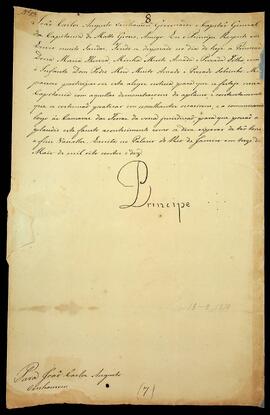 8
João Carlos Augusto d'Oeynhausen, Governador e Capitão General
da Capitania de Matto Grosso, Amigo. Eu o Principe Regente vos
Envio muito Saudar. Tendo-se desposado no dia de hoje a Princeza
Dona Maria Thereza, Minha Muito Amada e Prezada Filha com
o Infante Dom Pedro Meu Muito Amado e Prezado Sobrinho. Me
pareceo participar-vos esta alegre noticia para que a festeje essa
Capitania com aquellas demonstraçoens de aplauso e contentamento
que se costumão praticar em semelhantes occasioens, e a communiqueis
logo ás Camaras das Terras da vossa jurisdicção, para que possão
aplaudir este fausto acontecimento como se deve esperar de tão leaes
e fieis Vassallos. Escrita no Palacio do Rio de Janeiro em treze de
Maio de mil oito centos e dez.
Principe
13-5-1810
Para João Carlos Augusto
Oeynhausen
(7)